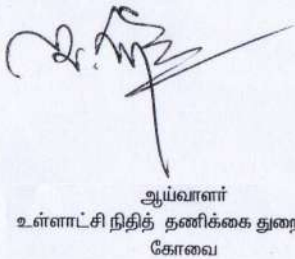 ஆய்வாளர்
உள்ளாட்சி நிதித் தணிக்கை துறை
கோவை